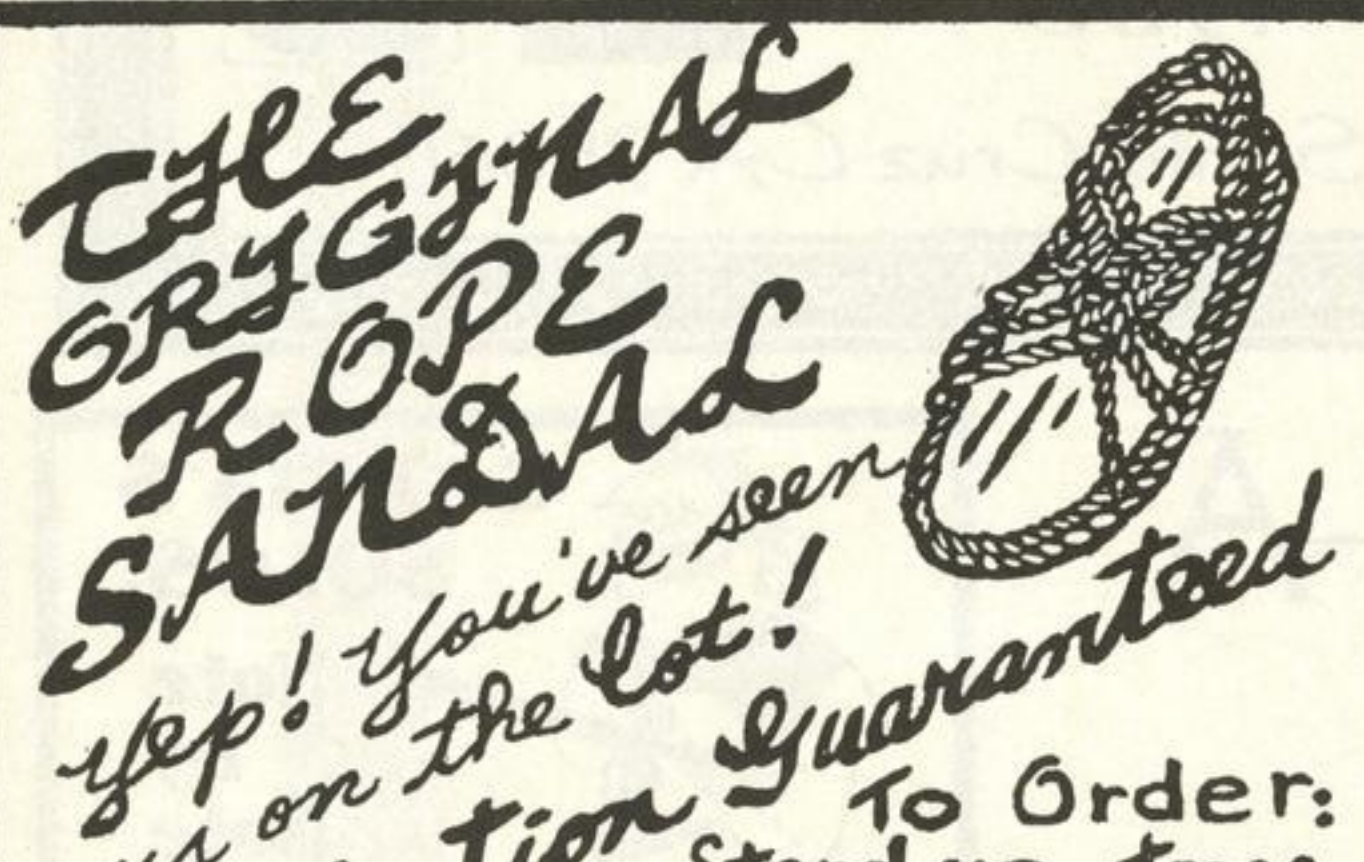 THE
ORYGYNAL
ROPE
SANDAL
Yep! You've seen
us on the lot!
tion Guaranteed
To Order: